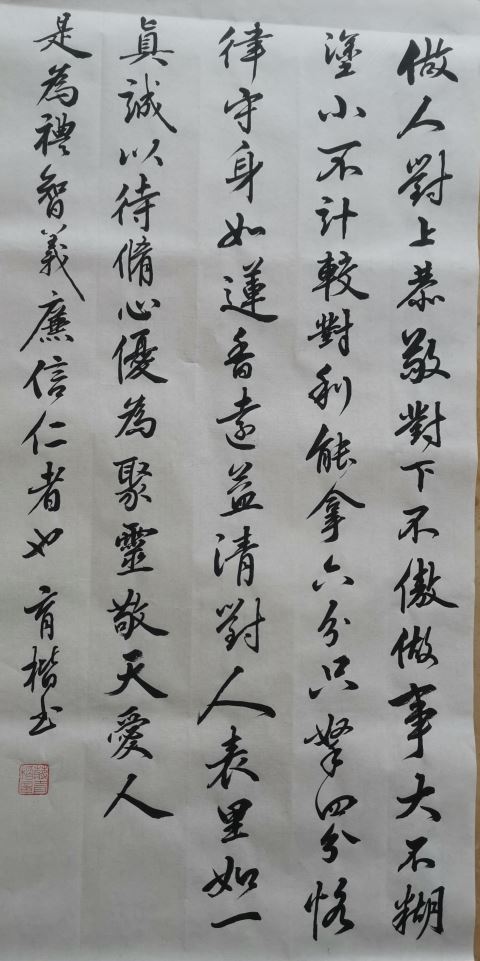 做人對上恭敬對下不傲做事大不糊
塗小不計較對利能拿六分只拏四分恪
律守身如蓮香遠益清對人表里如一
真誠以待脩心優為聚靈敬天愛人
是為禮智義廉信仁者也 育楷书